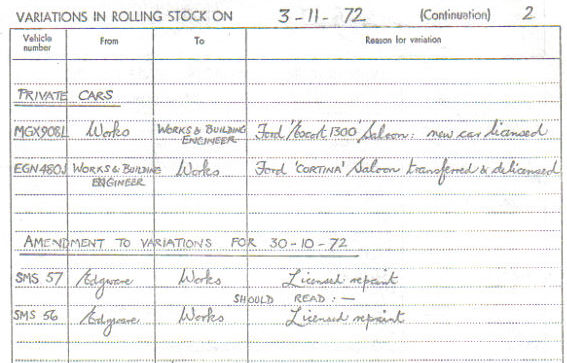 VARIATIONS IN ROLLING STOCK ON 3-11-72 (Continuation) 2
Vehicle number From To Reason for variation
PRIVATE CARS
MGX908L Works WORKS & BUILDING ENGINEER Ford 'Escort 1300' Saloon: new car licensed
EGN480J WORKS & BUILDING ENGINEER Works Ford 'CORTINA' Saloon transferred & delicensed
AMENDMENT TO VARIATIONS FOR 30-10-72
SMS 57 Edgware Works Licensed repaint
SHOULD READ:—
SMS 56 Edgware Works Licensed repaint